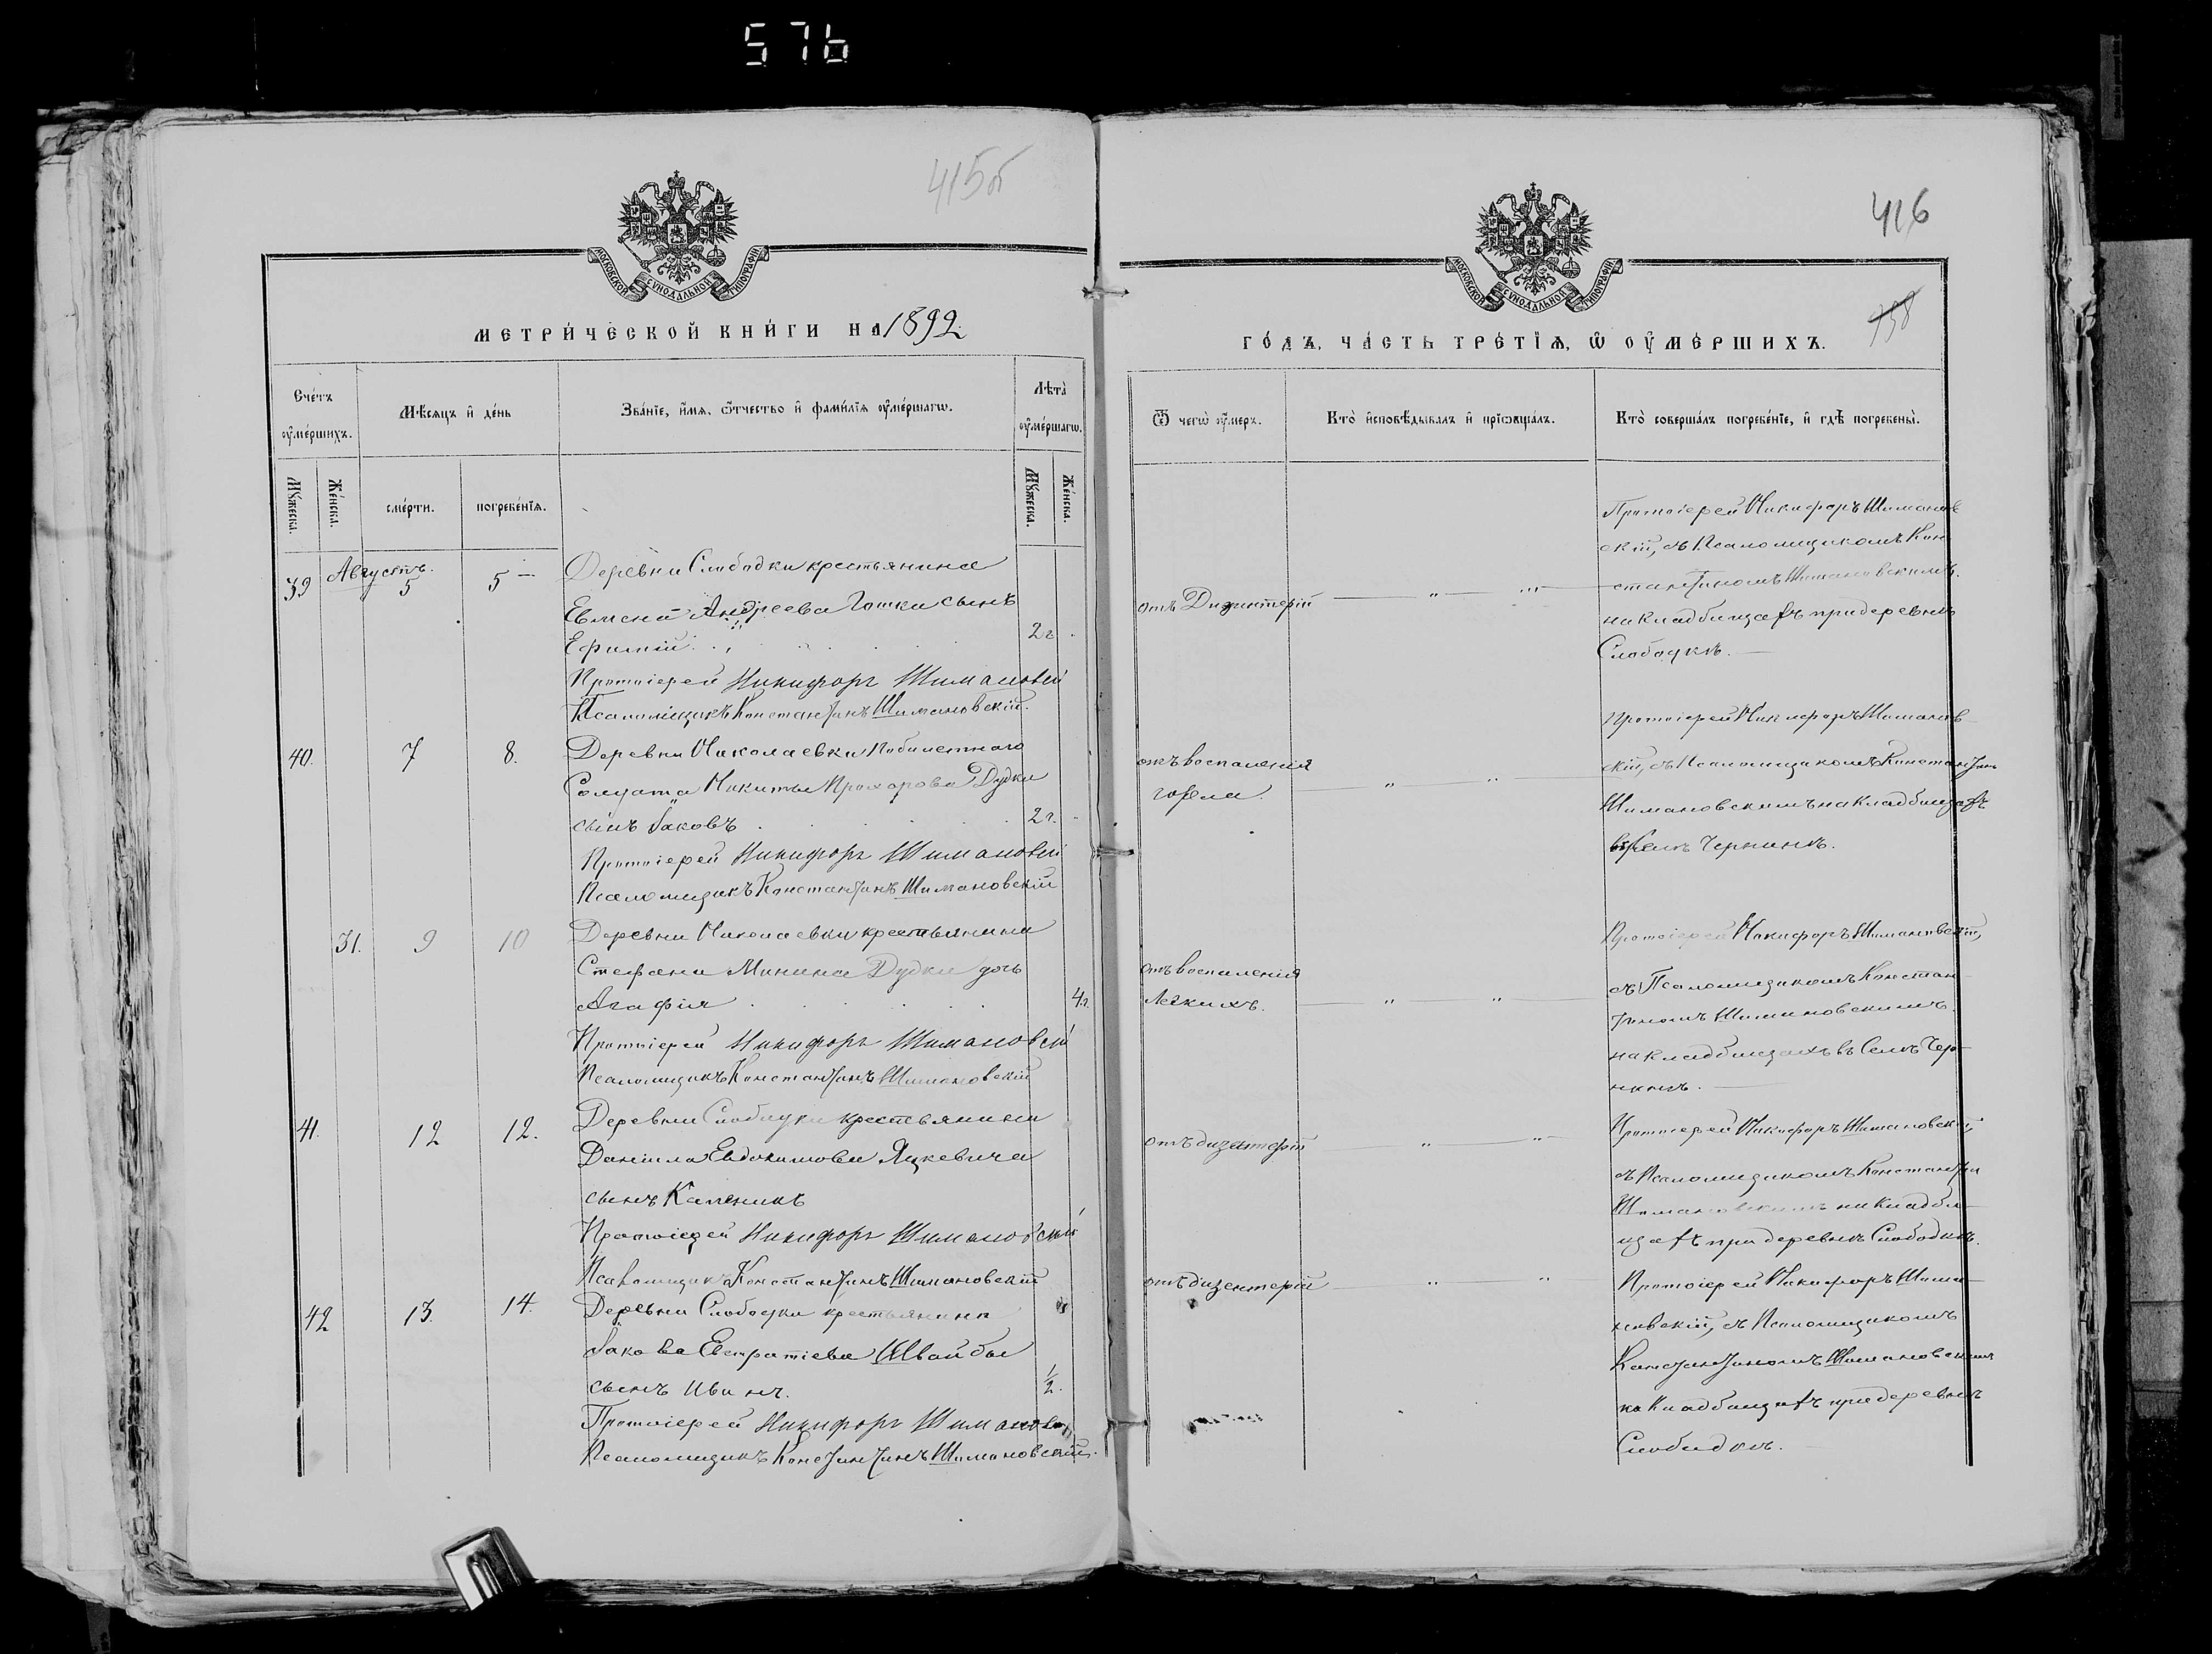 576
415об
МОСКОВСКОЙ СѴНОДАЛЬНОЙ ТИПОГРАФІИ
МЕТРИ́ЧЕСКОЙ КНИ́ГИ НА 1892
Сче́тъ ᲂу҆ме́ршихъ.
Мѣ́сяцъ и҆ де́нь
Зва́нїе, и҆́мѧ, ѻ҆́тчество и҆ фами́лїѧ ᲂу҆ме́ршагѡ.
Лѣта̀ ᲂу҆ме́ршагѡ.
Мꙋ́жеска.
Же́нска.
сме́рти.
погребе́нїѧ.
Мꙋ́жеска.
Же́нска.
39 Августъ. 5 5 Деревни Слободки крестьянина
Андреева Гошки сынъ
Ефимій 2 г
Протоіерей Никифоръ Шимановскій
Псаломщикъ Константинъ Шимановскій.
40. 7 8. Деревни Николаевки Побилетнаго
Солдата Никиты Прохорова Дудки
сынъ Іаковъ 2 г.
Протоіерей Никифоръ Шимановскій
Псаломщикъ Константинъ Шимановскій
31. 9 10 Деревни Николаевки крестьянина
Стефана Минина Дудки дочь
Агафія 4 г.
Протоіерей Никифоръ Шимановскій
Псаломщикъ Константинъ Шимановскій
41. 12 12. Деревни Слободки крестьянина
Даніила Евдокимова Яцкевича
сынъ Каленикъ
Протоіерей Никифоръ Шимановскій
Псаломщикъ Константинъ Шимановскій
42 13. 14. Деревни Слободки крестьянина
Іакова Евстратіева Швайбы
сынъ Иванъ. 1/2.
Протоіерей Никифоръ Шимановскій
Псаломщикъ Константинъ Шимановскій.
416
738
МОСКОВСКОЙ СѴНОДАЛЬНОЙ ТИПОГРАФІИ
ГО́ДЪ, ЧА́СТЬ ТРЕ́ТЇѦ, Ѡ҆ ОУ҆МЕ́РШИХЪ.
Ѿ чегѡ̀ ᲂу҆́меръ.
Кто̀ и҆сповѣ́дывалъ и҆ прїѡбща́лъ.
Кто̀ соверша́лъ погребе́нїе, и҆ гдѣ̀ погребены̀.
отъ Дизинтерій
Протоіерей Никифоръ Шиманов
скій, съ Псаломщикомъ Кон
стантиномъ Шимановскимъ.
на кладбищахъ при деревнѣ
Слободкѣ.
отъ воспаленія
горла.
Протоіерей Никифоръ Шиманов
скій, съ Псаломщикомъ Константин
Шимановскимъ на кладбищахъ
въ Селѣ Чернинѣ.
отъ воспаленія
легкихъ.
Протоіерей Никифоръ Шимановскій,
съ Псаломщикомъ Констан
тиномъ Шимановскимъ
на кладбищахъ въ Селѣ Чер-
нинѣ.
отъ дизентерій
Протоіерей Никифоръ Шимановскій,
съ Псаломщикомъ Константин
Шимановскимъ на кладби-
щахъ при деревнѣ Слободкѣ.
отъ дизентерій
Протоіерей Никифоръ Шима-
новскій, съ Псаломщикомъ
Константиномъ Шимановскимъ
на Кладбищахъ при деревнѣ
Слободкѣ.